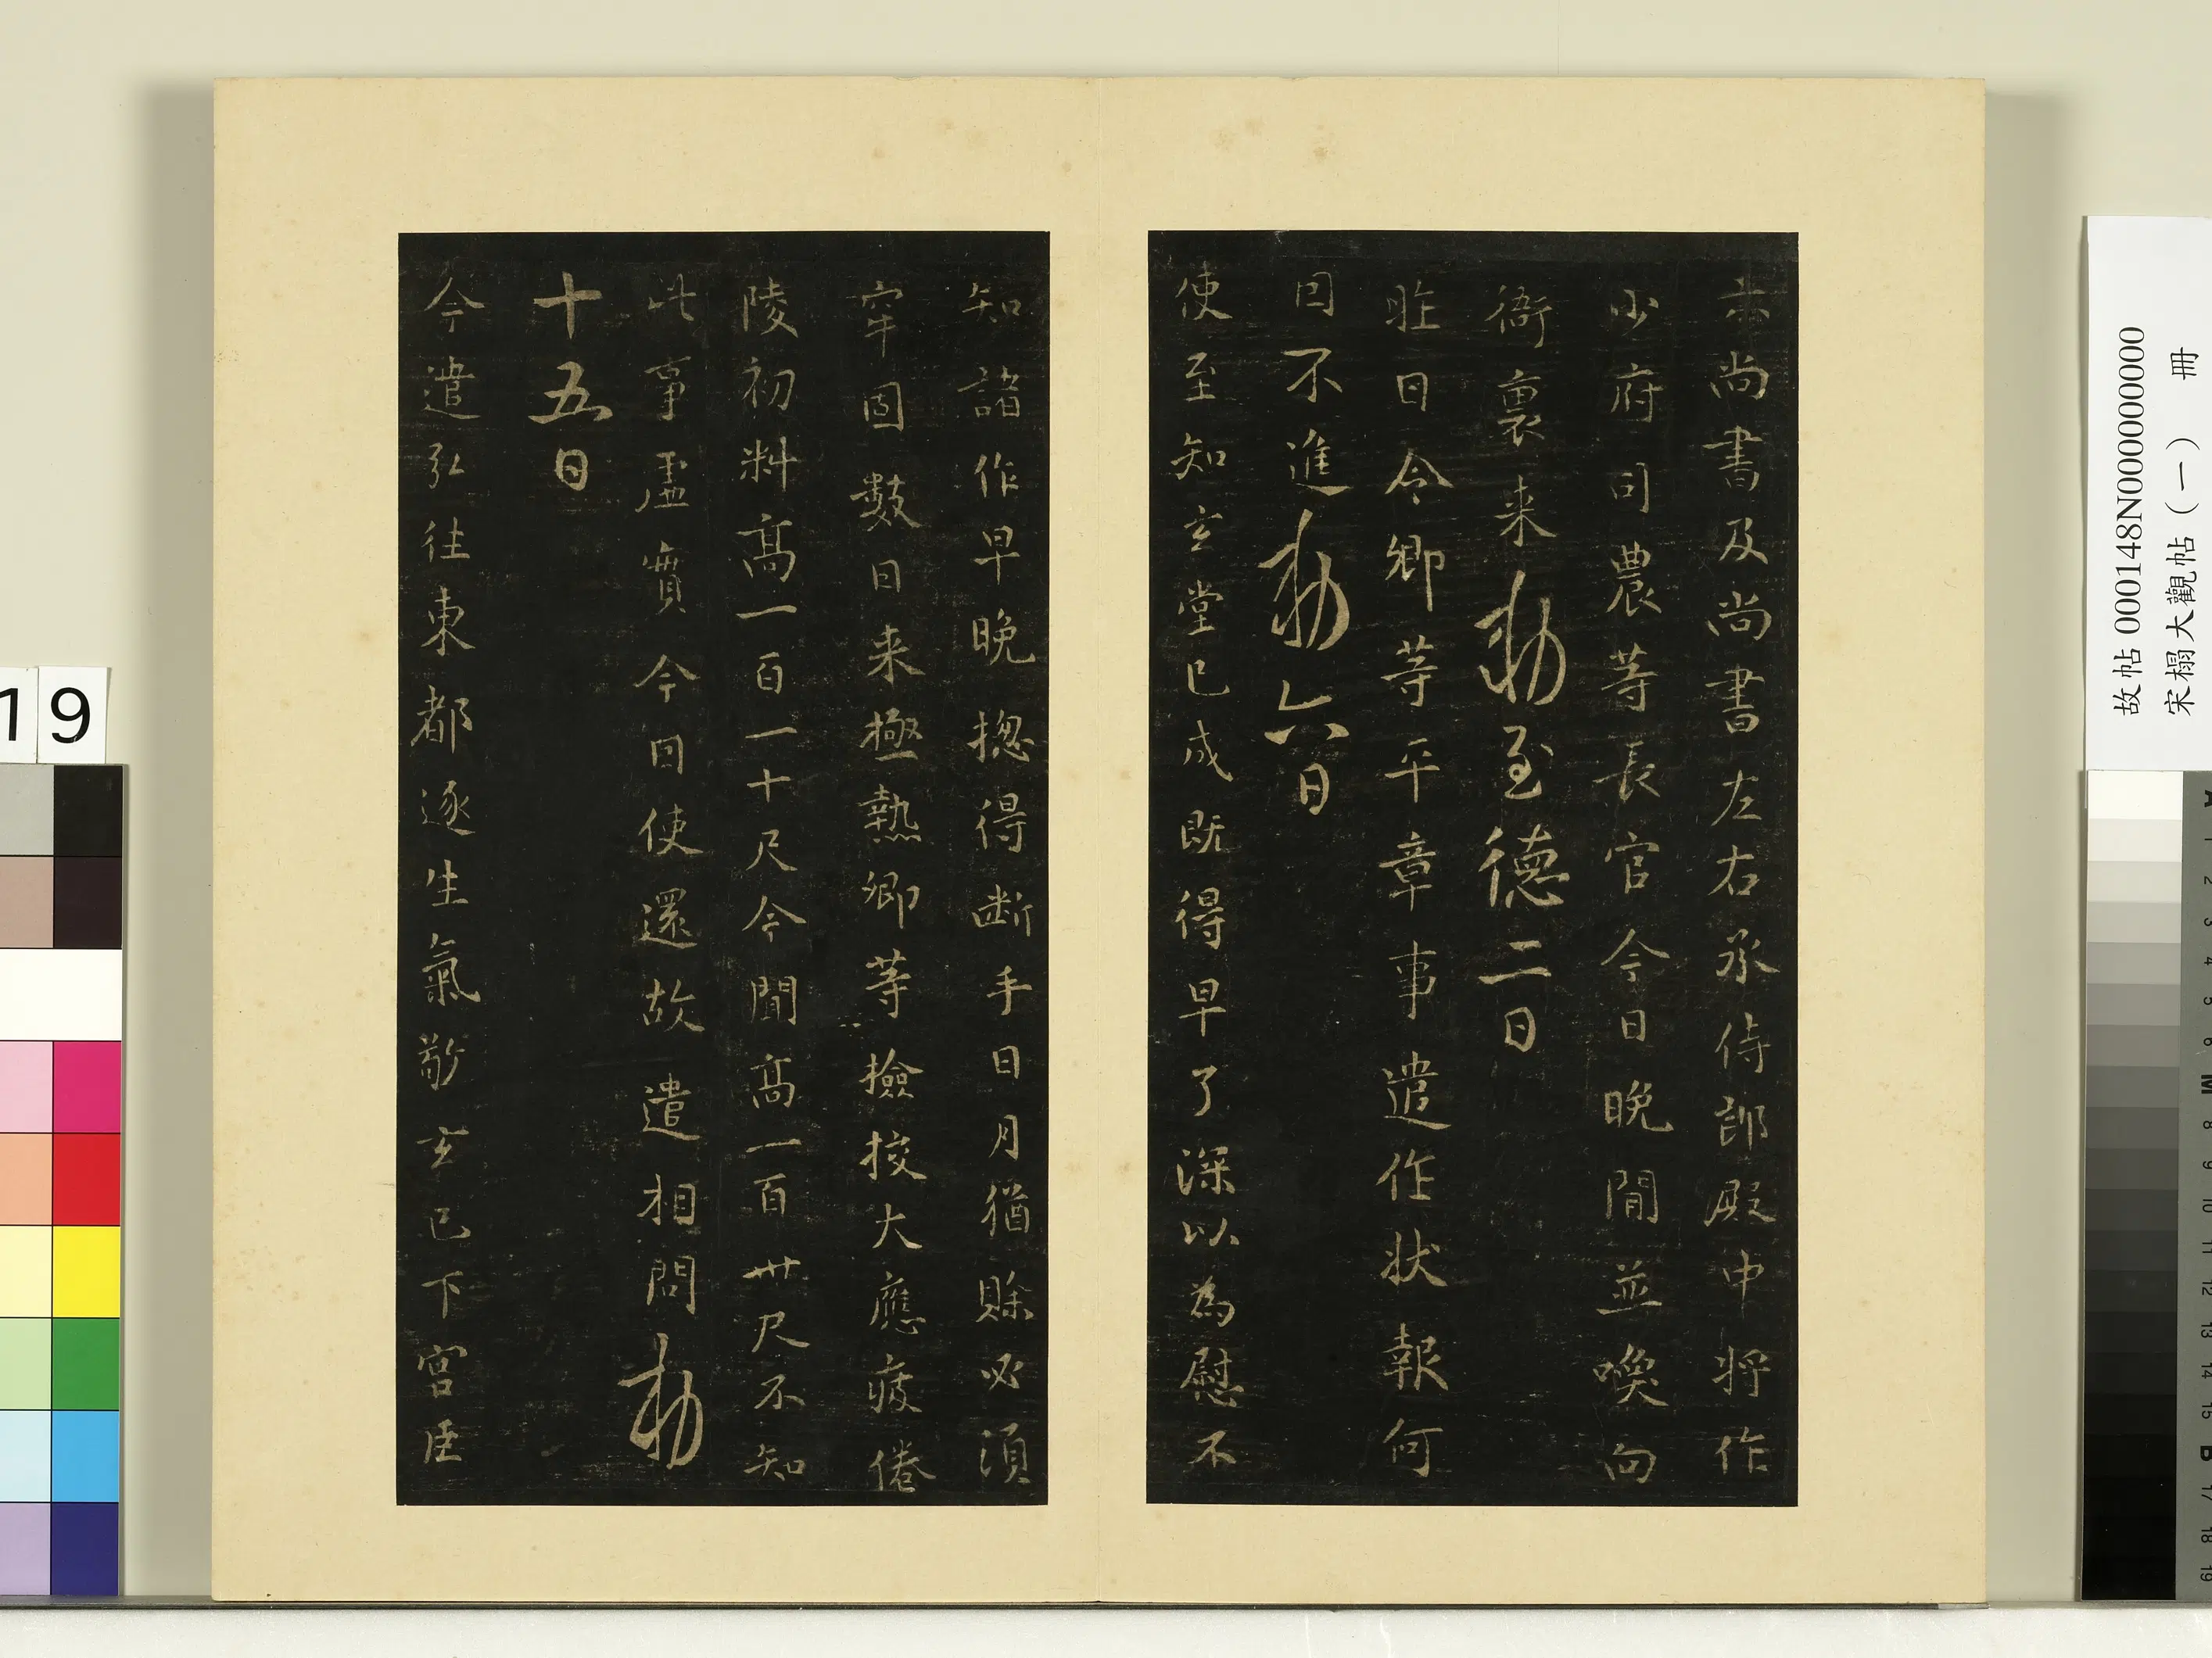 尚書及尚書左右丞侍郎殿中將作
少府司農等長官今日晚間並喚向
衙裏来勅至德二日
昨日令卿等平章事遣作狀報何
因不進勅六日
使至知玄堂已成既得早了深以為慰不
知諸作早晚揔得斷手日月猶賒必須
牢固數日来極熱卿等撿挍大應疲倦
陵初料高一百一十尺今聞高一百卅尺不知
此事虛實今因使還故遣相問勅
十五日
今遣弘往東都逐生氣敬玄已下宮臣
19
故帖 000148N000000000
宋榻大觀帖（一） 冊
A 1 2 3 4 5 6 M 8 9 10 11 12 13 14 15 B 17 18 19